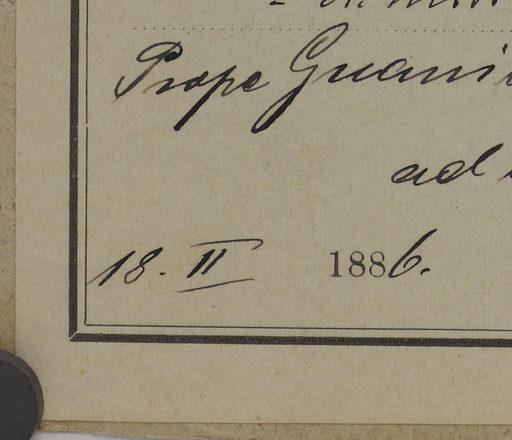 Prope Guani
ad
18. II 1886.